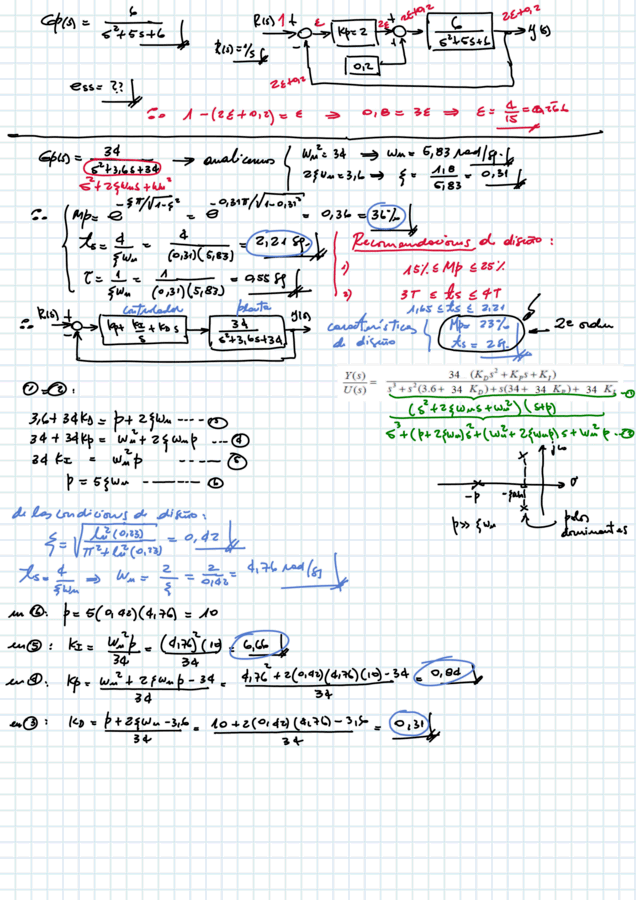 Gp(s) = 6 / (s²+5s+6)
ess = ??
R(s) 1 + ε Kp=2 2ε + 2ε+0,2 6 / (s²+5s+6) 2ε+0,2 y(s)
R(s) = 1/s
0,2
2ε+0,2
∴ 1-(2ε+0,2) = ε ⇒ 0,8 = 3ε ⇒ ε = 4/15 =
Gp(s) = 34 / (s²+3,6s+34) → analicemos
s²+2ξωns+ωn²
ωn² = 34 ⇒ ωn = 5,83 rad/sg.
2ξωn = 3,6 ⇒ ξ = 1,8/5,83 = 0,31
∴ Mp = e^(-ξπ/√1-ξ²) = e^(-0,31π/√1-0,31²) = 0,36 = 36%
ts = 4/ξωn = 4/((0,31)(5,83)) = 2,21 sg.
τ = 1/ξωn = 1/((0,31)(5,83)) = 0,55 sg
Recomendaciones de diseño:
1) 15% ≤ Mp ≤ 25%
2) 3τ ≤ ts ≤ 4τ
1,65 ≤ ts ≤ 2,21
∴ R(s) + - controlador Kp + KI/s + KD s planta 34 / (s²+3,6s+34) y(s)
características de diseño
Mp = 23%
ts = 2 sg.
← 2º orden
Y(s)/U(s) = 34 (K_D s² + K_P s + K_I) / (s³ + s²(3.6 + 34 K_D) + s(34 + 34 K_P) + 34 K_I) — ①
(s²+2ξωns+ωn²) (s+p)
s³+(p+2ξωn)s²+(ωn²+2ξωnp)s+ωn²p — ②
① = ② :
3,6+34KD = p+2ξωn ---- ③
34+34Kp = ωn²+2ξωnp --- ④
34 KI = ωn²p ---- ⑤
p = 5ξωn ——— ⑥
jω
σ
-p
-ξωn
p >> ξωn
polos dominantes
de las condiciones de diseño:
ξ = √(ln²(0,23) / (π²+ln²(0,23))) = 0,42
ts = 4/ξωn ⇒ ωn = 2/ξ = 2/0,42 = 4,76 rad/sg
en ⑥: p = 5(0,42)(4,76) = 10
en ⑤: KI = ωn²p/34 = (4,76)²(10)/34 = 6,66
en ④: Kp = (ωn²+2ξωnp-34)/34 = (4,76²+2(0,42)(4,76)(10)-34)/34 = 0,84
en ③: KD = (p+2ξωn-3,6)/34 = (10+2(0,42)(4,76)-3,6)/34 = 0,31